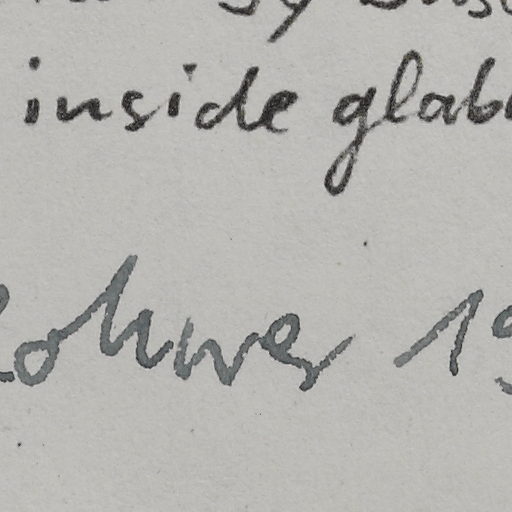 inside glab
Rohwer 19